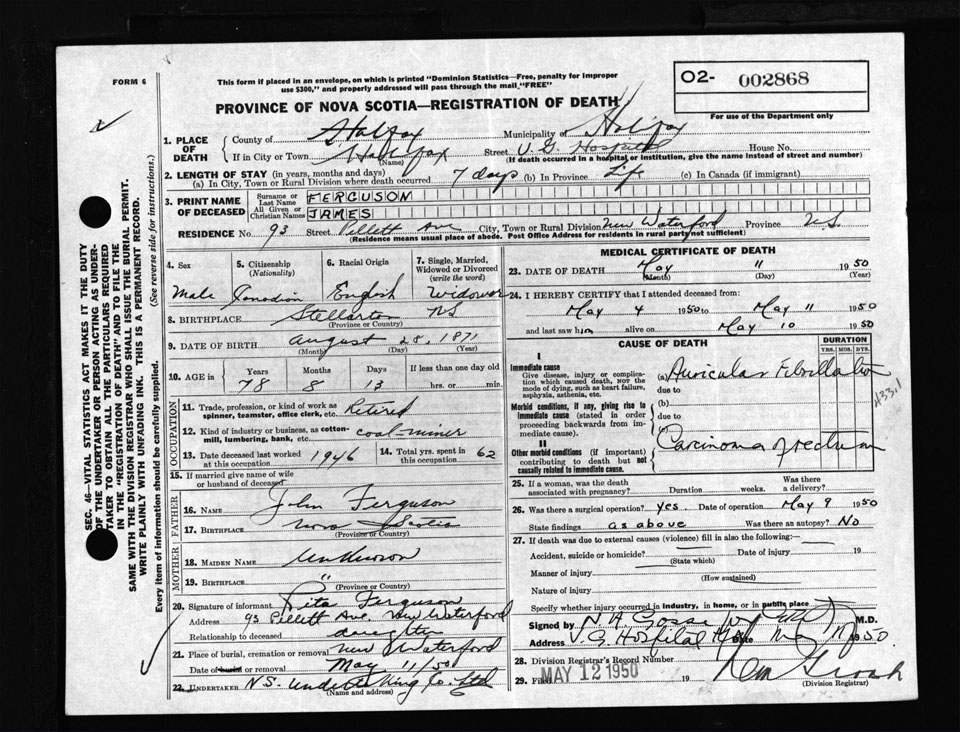 FORM 6
This form if placed in an envelope, on which is printed "Dominion Statistics—Free, penalty for improper
use $300," and properly addressed will pass through the mail "FREE"
O2- 002868
For use of the Department only
PROVINCE OF NOVA SCOTIA—REGISTRATION OF DEATH
1. PLACE OF DEATH
County of Halifax Municipality of Halifax
If in City or Town Halifax (Name) Street V.G. Hospital House No.
(If death occurred in a hospital or institution, give the name instead of street and number)
2. LENGTH OF STAY (in years, months and days)
(a) In City, Town or Rural Division where death occurred 7 days (b) In Province Life (c) In Canada (if immigrant)
3. PRINT NAME OF DECEASED
Surname or Last Name FERGUSON
All Given or Christian Names JAMES
RESIDENCE No. 93 Street Pellett Ave City, Town or Rural Division New Waterford Province N.S
(Residence means usual place of abode. Post Office Address for residents in rural parts not sufficient)
4. Sex
Male
5. Citizenship (Nationality)
Canadian
6. Racial Origin
English
7. Single, Married, Widowed or Divorced (write the word)
Widower
8. BIRTHPLACE Stellarton NS
(Province or Country)
9. DATE OF BIRTH August 28, 1871
(Month) (Day) (Year)
10. AGE in Years Months Days If less than one day old
78 8 13 hrs. or min.
OCCUPATION
11. Trade, profession, or kind of work as spinner, teamster, office clerk, etc. Retired
12. Kind of industry or business, as cotton-mill, lumbering, bank, etc. coal-miner
13. Date deceased last worked at this occupation 1946 14. Total yrs. spent in this occupation 62
15. If married give name of wife or husband of deceased
FATHER
16. NAME John Ferguson
17. BIRTHPLACE Nova Scotia
(Province or Country)
MOTHER
18. MAIDEN NAME Unknown
19. BIRTHPLACE "
(Province or Country)
20. Signature of informant Rita Ferguson
Address 93 Pellett Ave. New Waterford
Relationship to deceased daughter
21. Place of burial, cremation or removal New Waterford
Date of burial or removal May 11/50
22. UNDERTAKER N.S. Undertaking Co. Ltd
(Name and address)
MEDICAL CERTIFICATE OF DEATH
23. DATE OF DEATH May 11 1950
(Month) (Day) (Year)
24. I HEREBY CERTIFY that I attended deceased from:
May 4 1950 to May 11 1950
and last saw him alive on May 10 1950
CAUSE OF DEATH
DURATION
YRS. MOS. DYS.
I
Immediate cause
Give disease, injury or complication which caused death, NOT the mode of dying, such as heart failure, asphyxia, asthenia, etc.
(a) Auricular Fibrillation
due to
4331
Morbid conditions, if any, giving rise to immediate cause (stated in order proceeding backwards from immediate cause).
(b)
due to
(c)
II
Other morbid conditions (if important) contributing to death but not causally related to immediate cause.
Carcinoma of rectum
25. If a woman, was the death associated with pregnancy? Duration weeks. Was there a delivery?
26. Was there surgical operation? yes. Date of operation May 9 1950
State findings as above Was there an autopsy? No
27. If death was due to external causes (violence) fill in also the following:
Accident, suicide or homicide? Date of injury 19
(State which)
Manner of injury
(How sustained)
Nature of injury
Specify whether injury occurred in industry, in home, or in public place
Signed by M.D.
Address V.G. Hospital Date May 11 1950
28. Division Registrar's Record Number
29. Filed MAY 12 1950 19
(Division Registrar)
SEC. 46—VITAL STATISTICS ACT MAKES IT THE DUTY
OF THE UNDERTAKER OR PERSON ACTING AS UNDER-
TAKER TO OBTAIN ALL THE PARTICULARS REQUIRED
IN THE "REGISTRATION OF DEATH" AND TO FILE THE
SAME WITH THE DIVISION REGISTRAR WHO SHALL ISSUE THE BURIAL PERMIT.
WRITE PLAINLY WITH UNFADING INK. THIS IS A PERMANENT RECORD.
Every item of information should be carefully supplied. (See reverse side for instructions.)